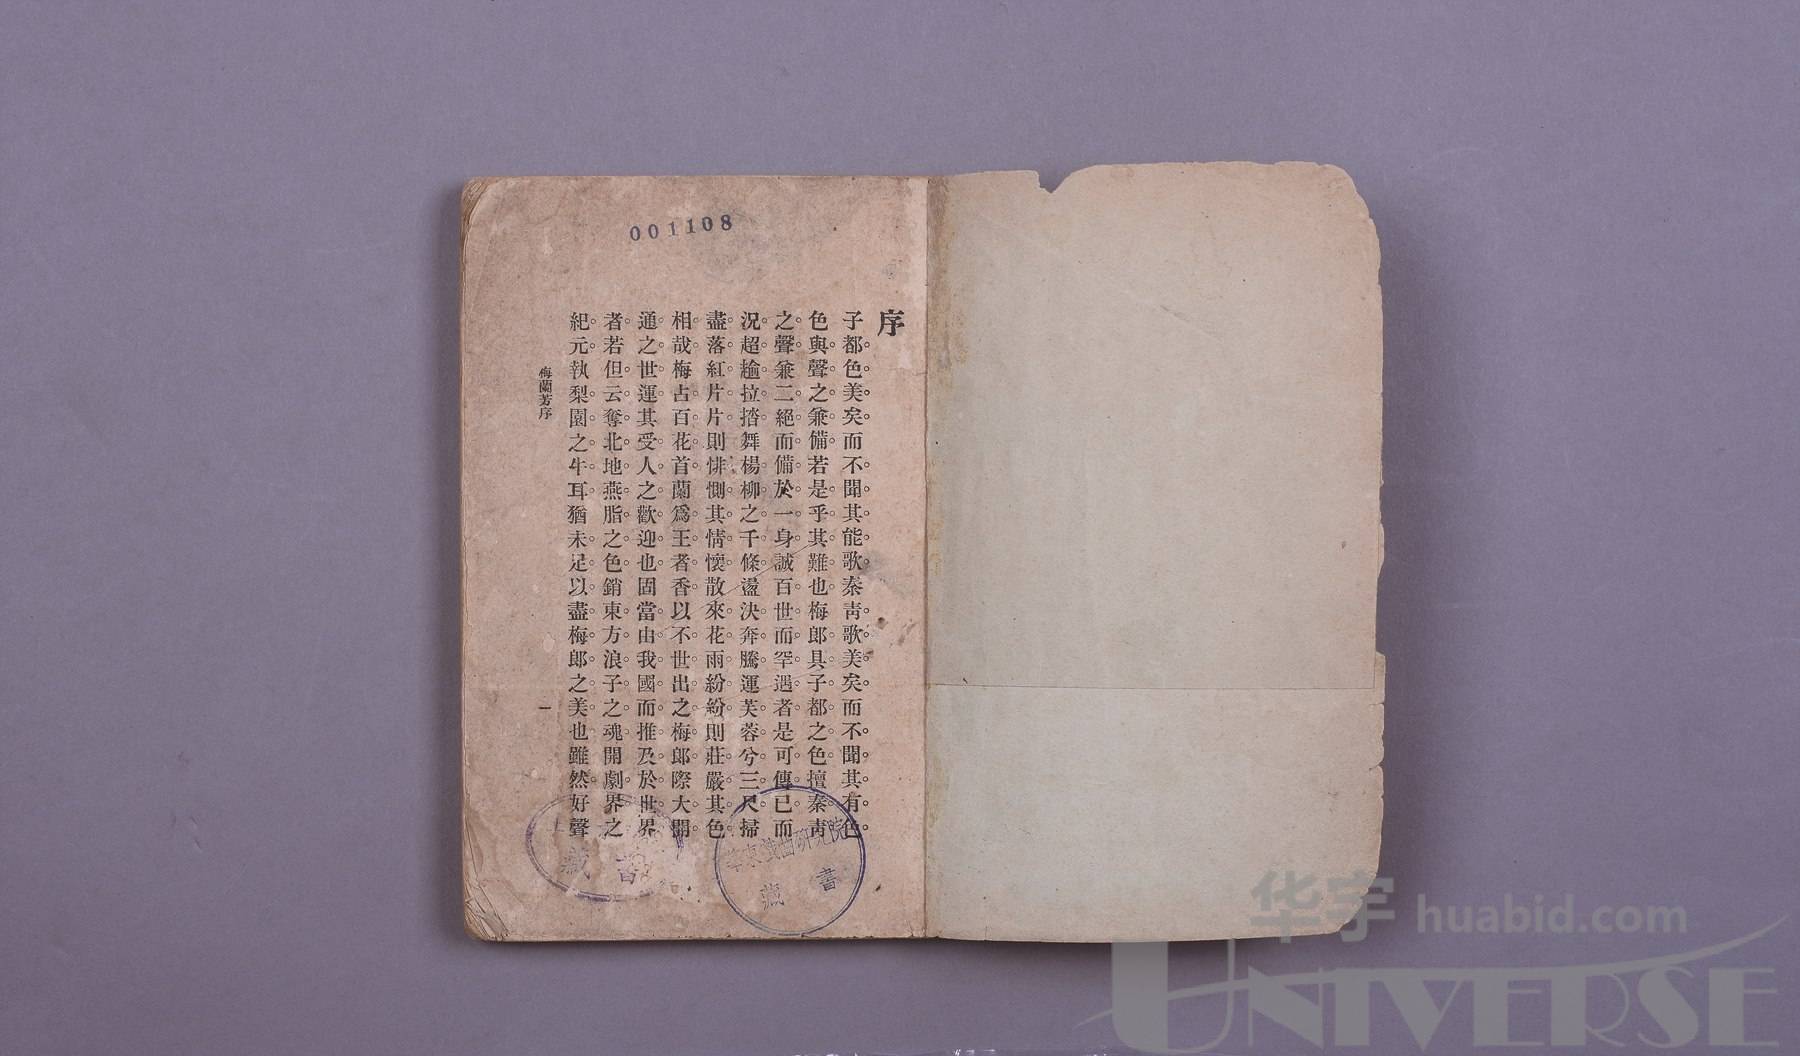 001108
序
子都色美矣而不聞其能歌秦靑歌美矣而不聞其有色
色與聲之兼備若是乎其難也梅郎具子都之色擅秦靑
之聲兼二絕而備於一身誠百世而罕遇者是可傳已而
況超踰拉揩舞楊柳之千條盪決奔騰運芙蓉兮三尺掃
盡落紅片片則悱惻其情懷散來花雨紛紛則莊嚴其色
相哉梅占百花首蘭爲王者香以不世出之梅郎際大開
通之世運其受人之歡迎也固當由我國而推及於世界
者若但云奪北地燕脂之色銷東方浪子之魂開劇界之
紀元執梨園之牛耳猶未足以盡梅郎之美也雖然好聲
梅蘭芳序
一
華東戲曲研究院
藏書
藏書
华宇 huabid.com
UNIVERSE